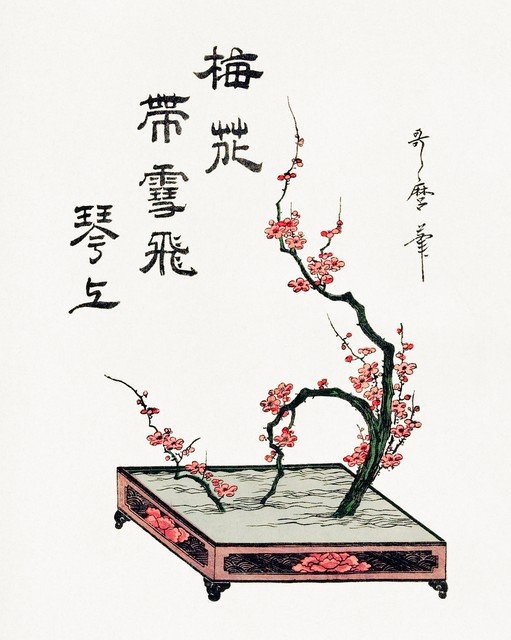 梅花
帶雪飛
琴上
哥麿筆